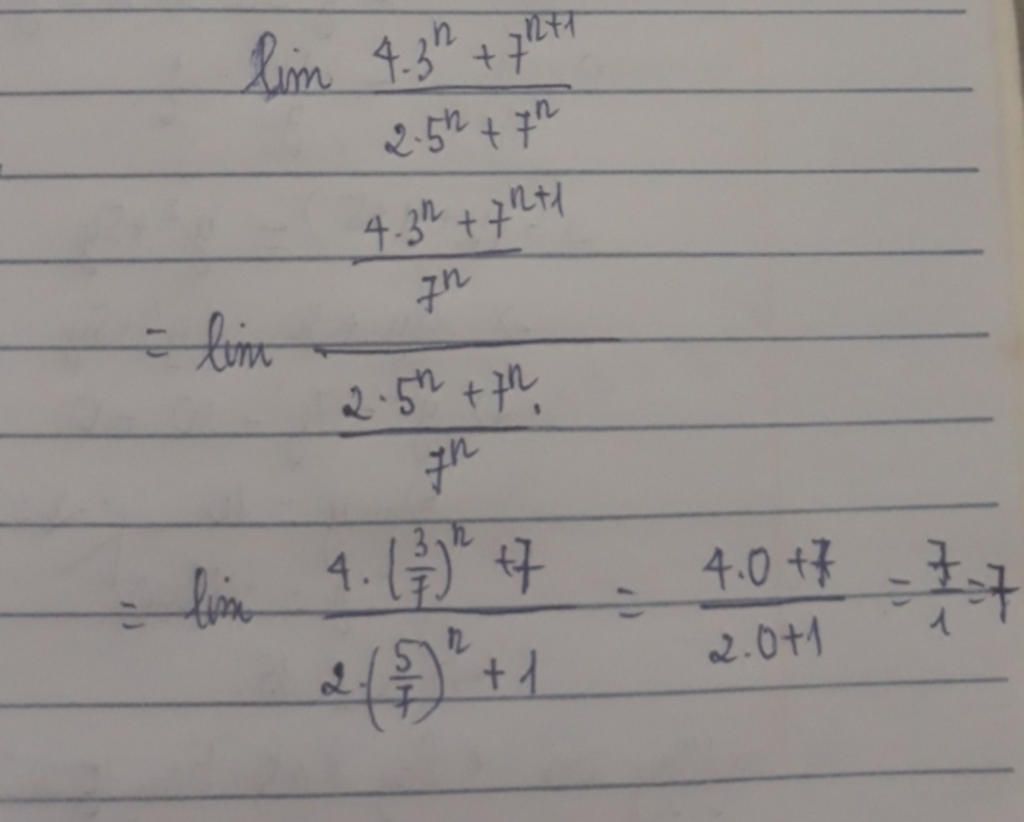 lim (4.3ⁿ + 7ⁿ⁺¹)/(2·5ⁿ + 7ⁿ)
= lim ((4·3ⁿ + 7ⁿ⁺¹)/7ⁿ)/((2·5ⁿ + 7ⁿ.)/7ⁿ)
= lim (4·(3/7)ⁿ + 7)/(2·(5/7)ⁿ + 1) = (4.0 + 7)/(2.0 + 1) = 7/1 = 7